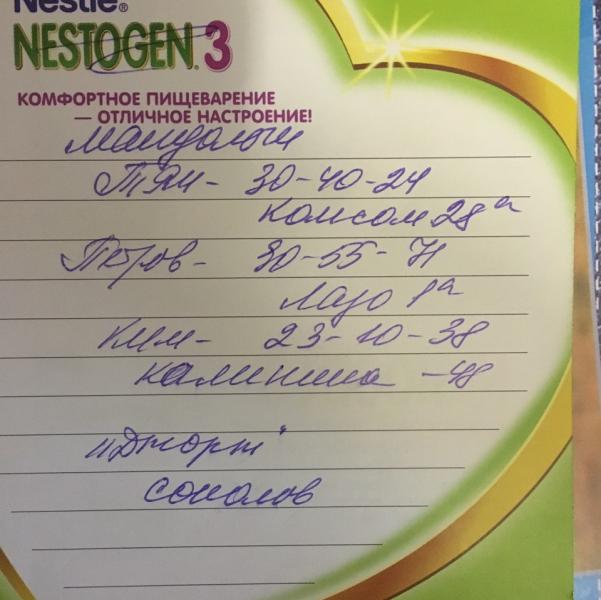 Nestlé®
NESTOGEN® 3
КОМФОРТНОЕ ПИЩЕВАРЕНИЕ
— ОТЛИЧНОЕ НАСТРОЕНИЕ!
Тян - 30-40-24
Комсом 28а
Петров - 30-55-71
Лазо 1а
Ким - 23-10-38
Калинина - 48
соколов